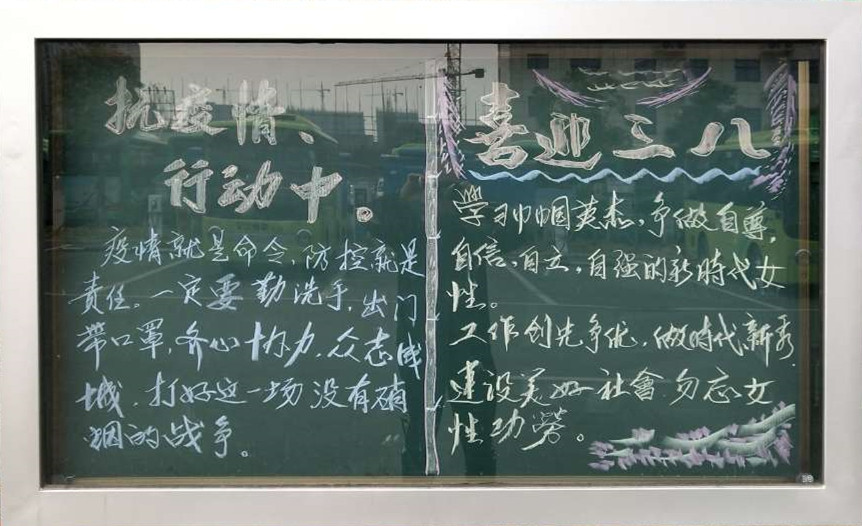 抗疫情、
行动中。
疫情就是命令,防控就是
责任。一定要勤洗手,出门
带口罩,齐心协力,众志成
城,打好这一场没有硝
烟的战争。
喜迎三八
學习巾帼英杰,争做自尊,
自信,自立,自强的新時代女
性。
工作创先争优,做时代新秀,
建设美好社會勿忘女
性功劳。